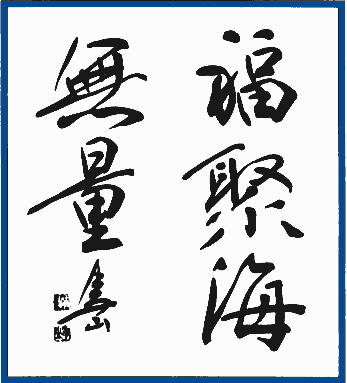 福聚海
無量